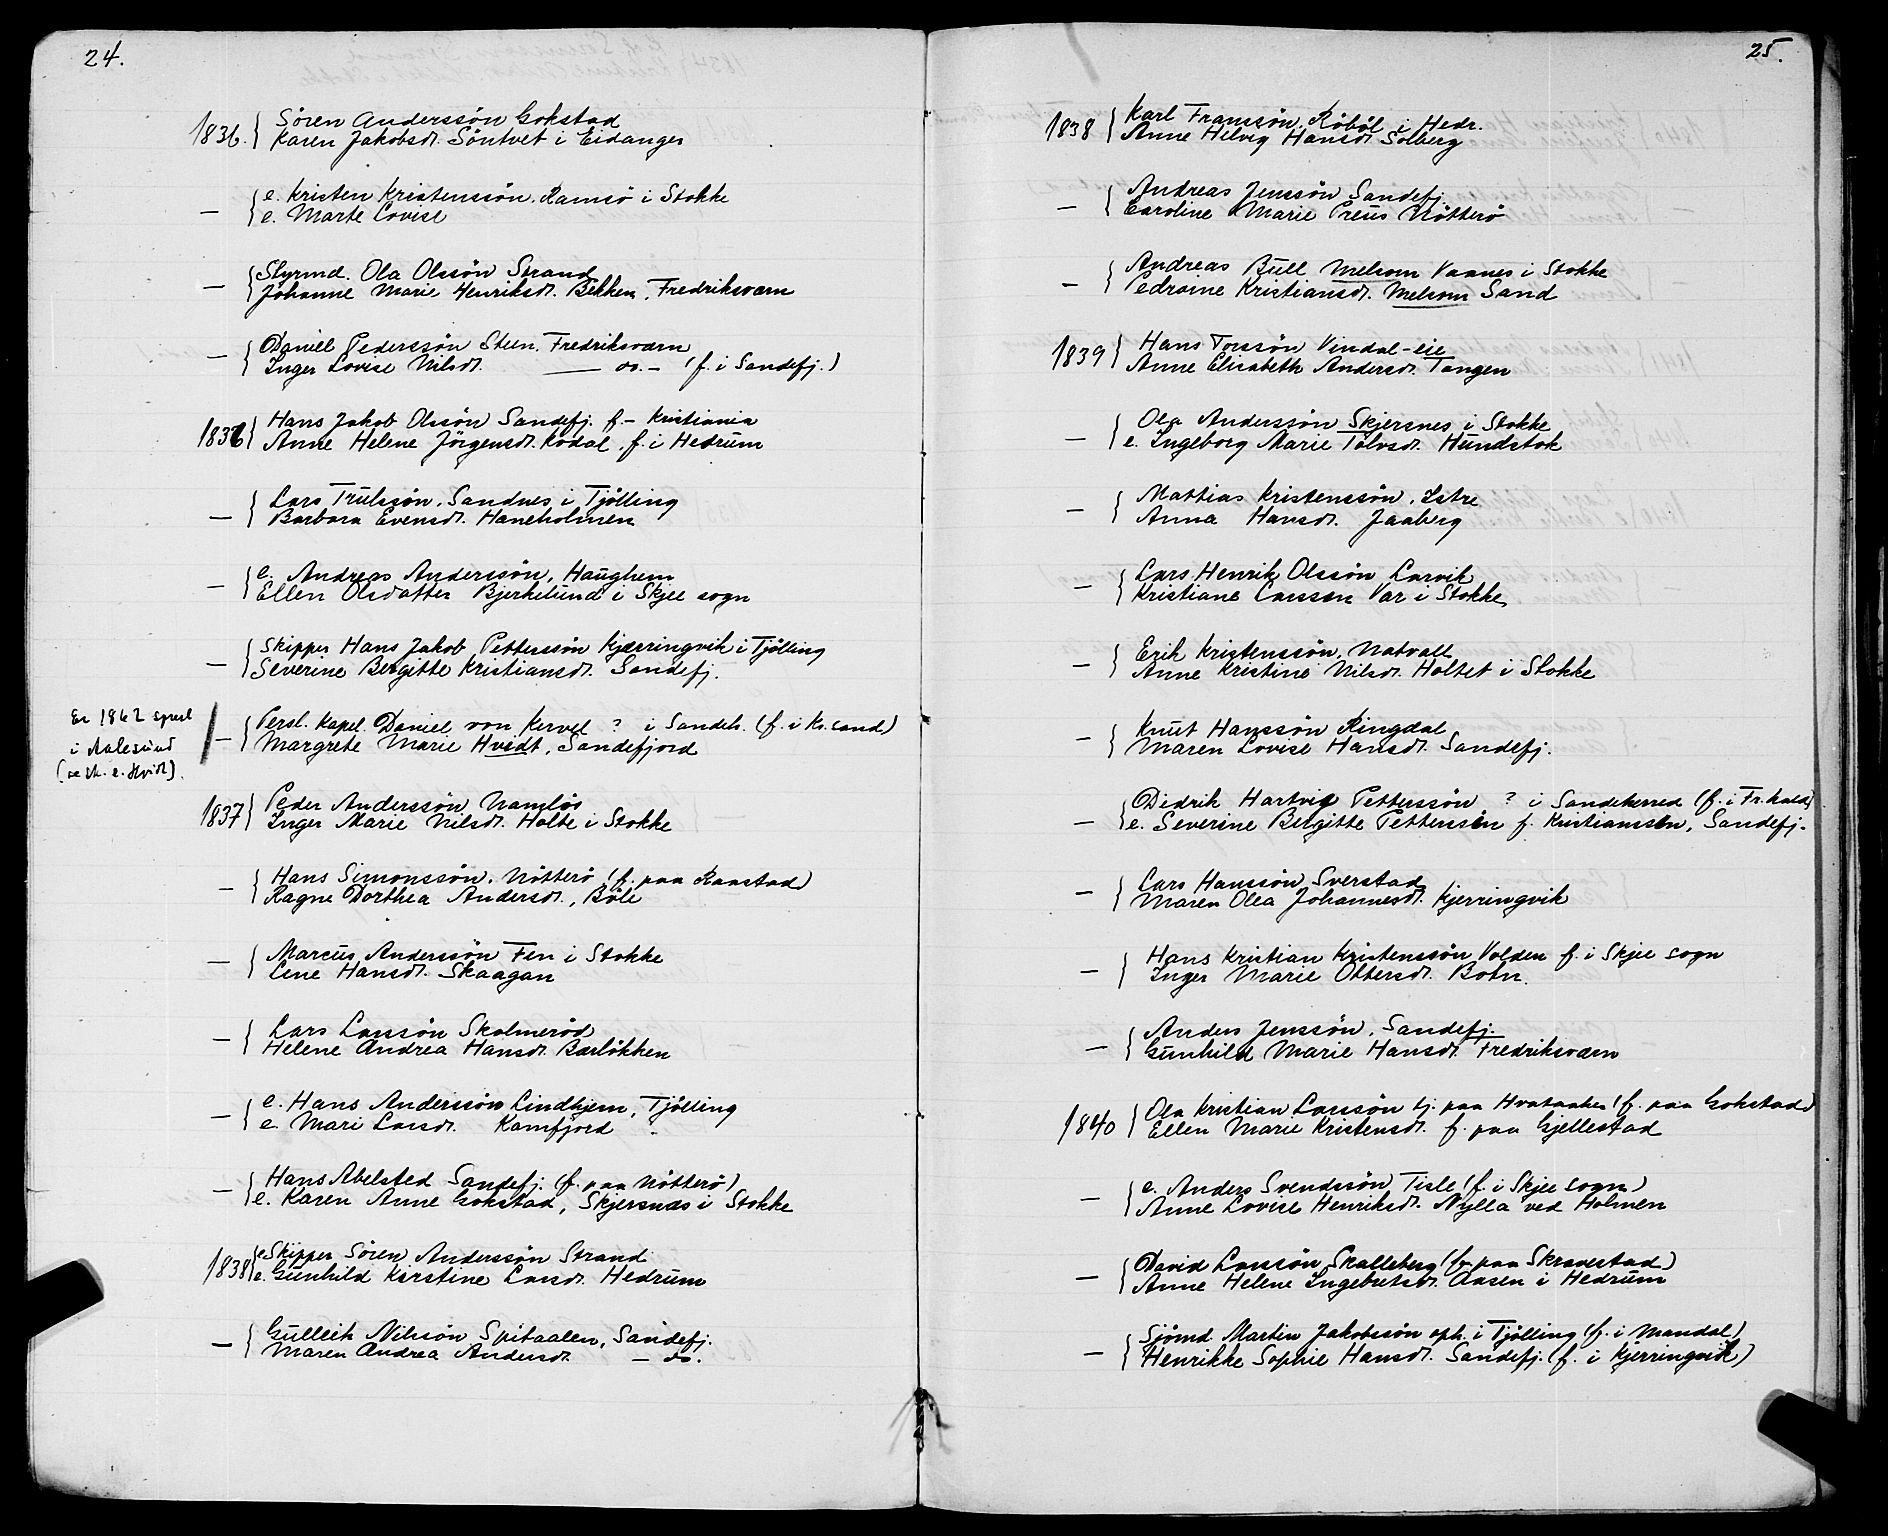 24.
1836. { Sören Anderssön Gokstad
Karen Jakobsdt. Söntvet i Eidanger
— { e. Kristen Kristenssön, Ramsö i Stokke
e. Marte Lovise
— { Styrmd. Ola Olssön Strand
Johanne Marie Henriksdt. Bekken, Fredriksværn
— { Daniel Pederssön Steen, Fredriksværn
Inger Lovise Nilsdt. — do. — (f. i Sandefj.)
1836 { Hans Jakob Olssön Sandefj. f. – Kristiania
Anne Helene Jörgensdt. Kodal, f. i Hedrum
— { Lars Trulssön, Sandnes i Tjölling
Barbara Evensdt. Haneholmen
— { e. Andreas Anderssön, Haughem
Ellen Olsdatter Bjerkelund i Skjee sogn
— { Skipper Hans Jakob Petterssön Kjærringvik i Tjölling
Severine Bergitte Kristiansdt. Sandefj.
Er 1862 sprest
i Aalesund
— { Persl. Kapel. Daniel von Kervel ? i Sandeh. (f. i Kr.sand)
Margrete Marie Hvidt, Sandefjord
1837 { Peder Anderssön Namlös
Inger Marie Nilsdt. Holte i Stokke
— { Hans Simonssön, Nötterö (f. paa Raastad)
Ragne Dorthea Andersdt., Böle
— { Marcus Anderssön Fen i Stokke
Lene Hansdt. Skaagan
— { Lars Larssön Skolmeröd
Helene Andrea Hansdt. Bærlökken
— { e. Hans Anderssön Lindhjem, Tjölling
e. Mari Larsdt. Kamfjord
— { Hans Abelsted Sandefj. (f. paa Nötterö)
e. Karen Anne Gokstad, Skjersnæs i Stokke
1838 { e. Skipper Sören Anderssön Strand
e. Gunhild Kirstine Larsdt. Hedrum
— { Gulleik Nilssön Spitaalen, Sandefj.
Maren Andrea Andersdt. — do.
25.
1838 { Karl Franssön, Röböl i Hedr.
Anne Helvig Hansdt. Solberg
— { Andreas Jenssön Sandefj.
Caroline Marie Preus Nötterö
— { Andreas Bull Melsom Vaanes i Stokke
Pedroine Kristiansdt. Melsom Sand
1839 { Hans Torssön Vindal-eie
Anne Elisabeth Andersdt. Tangen
— { Ola Anderssön Skjersnes i Stokke
e. Ingeborg Marie Tolvsdt. Hundstok
— { Mattias Kristenssön, Istre
Anna Hansdt. Jaaberg
— { Lars Henrik Olssön Larvik
Kristiane Larssen Var i Stokke
— { Erik Kristenssön, Natvall
Anne Kristine Nilsdt. Holtet i Stokke
— { Knut Hanssön Ringdal
Maren Lovise Hansdt. Sandefj.
— { Didrik Hartvig Petterssön ? i Sandeherred (f. i Fr.hald)
e. Severine Bergitte Petterssen f. Kristianssen, Sandefj.
— { Lars Hanssön Sverstad
Maren Olea Johannesdt. Kjerringvik
— { Hans Kristian Kristenssön Volden f. i Skjee sogn
Inger Marie Ottersdt. Botn.
— { Anders Jenssön, Sandefj.
Gunhild Marie Hansdt. Fredriksværn
1840 { Ola Kristian Larssön tj. paa Hvataaker (f. paa Gokstad)
Ellen Marie Kristensdt. f. paa Gjellestad
— { e. Anders Svendssön Tisle (f. i Skjee sogn)
Anne Lovise Henriksdt. Nylla ved Holmen
— { David Larssön Skalleberg (f. paa Skravestad)
Anne Helene Ingebretsdt. Aasen i Hedrum
— { Sjömd. Martin Jakobssön oph. i Tjölling (f. i Mandal)
Henrikke Sophie Hansdt. Sandefj. (f. i Kjerringvik)